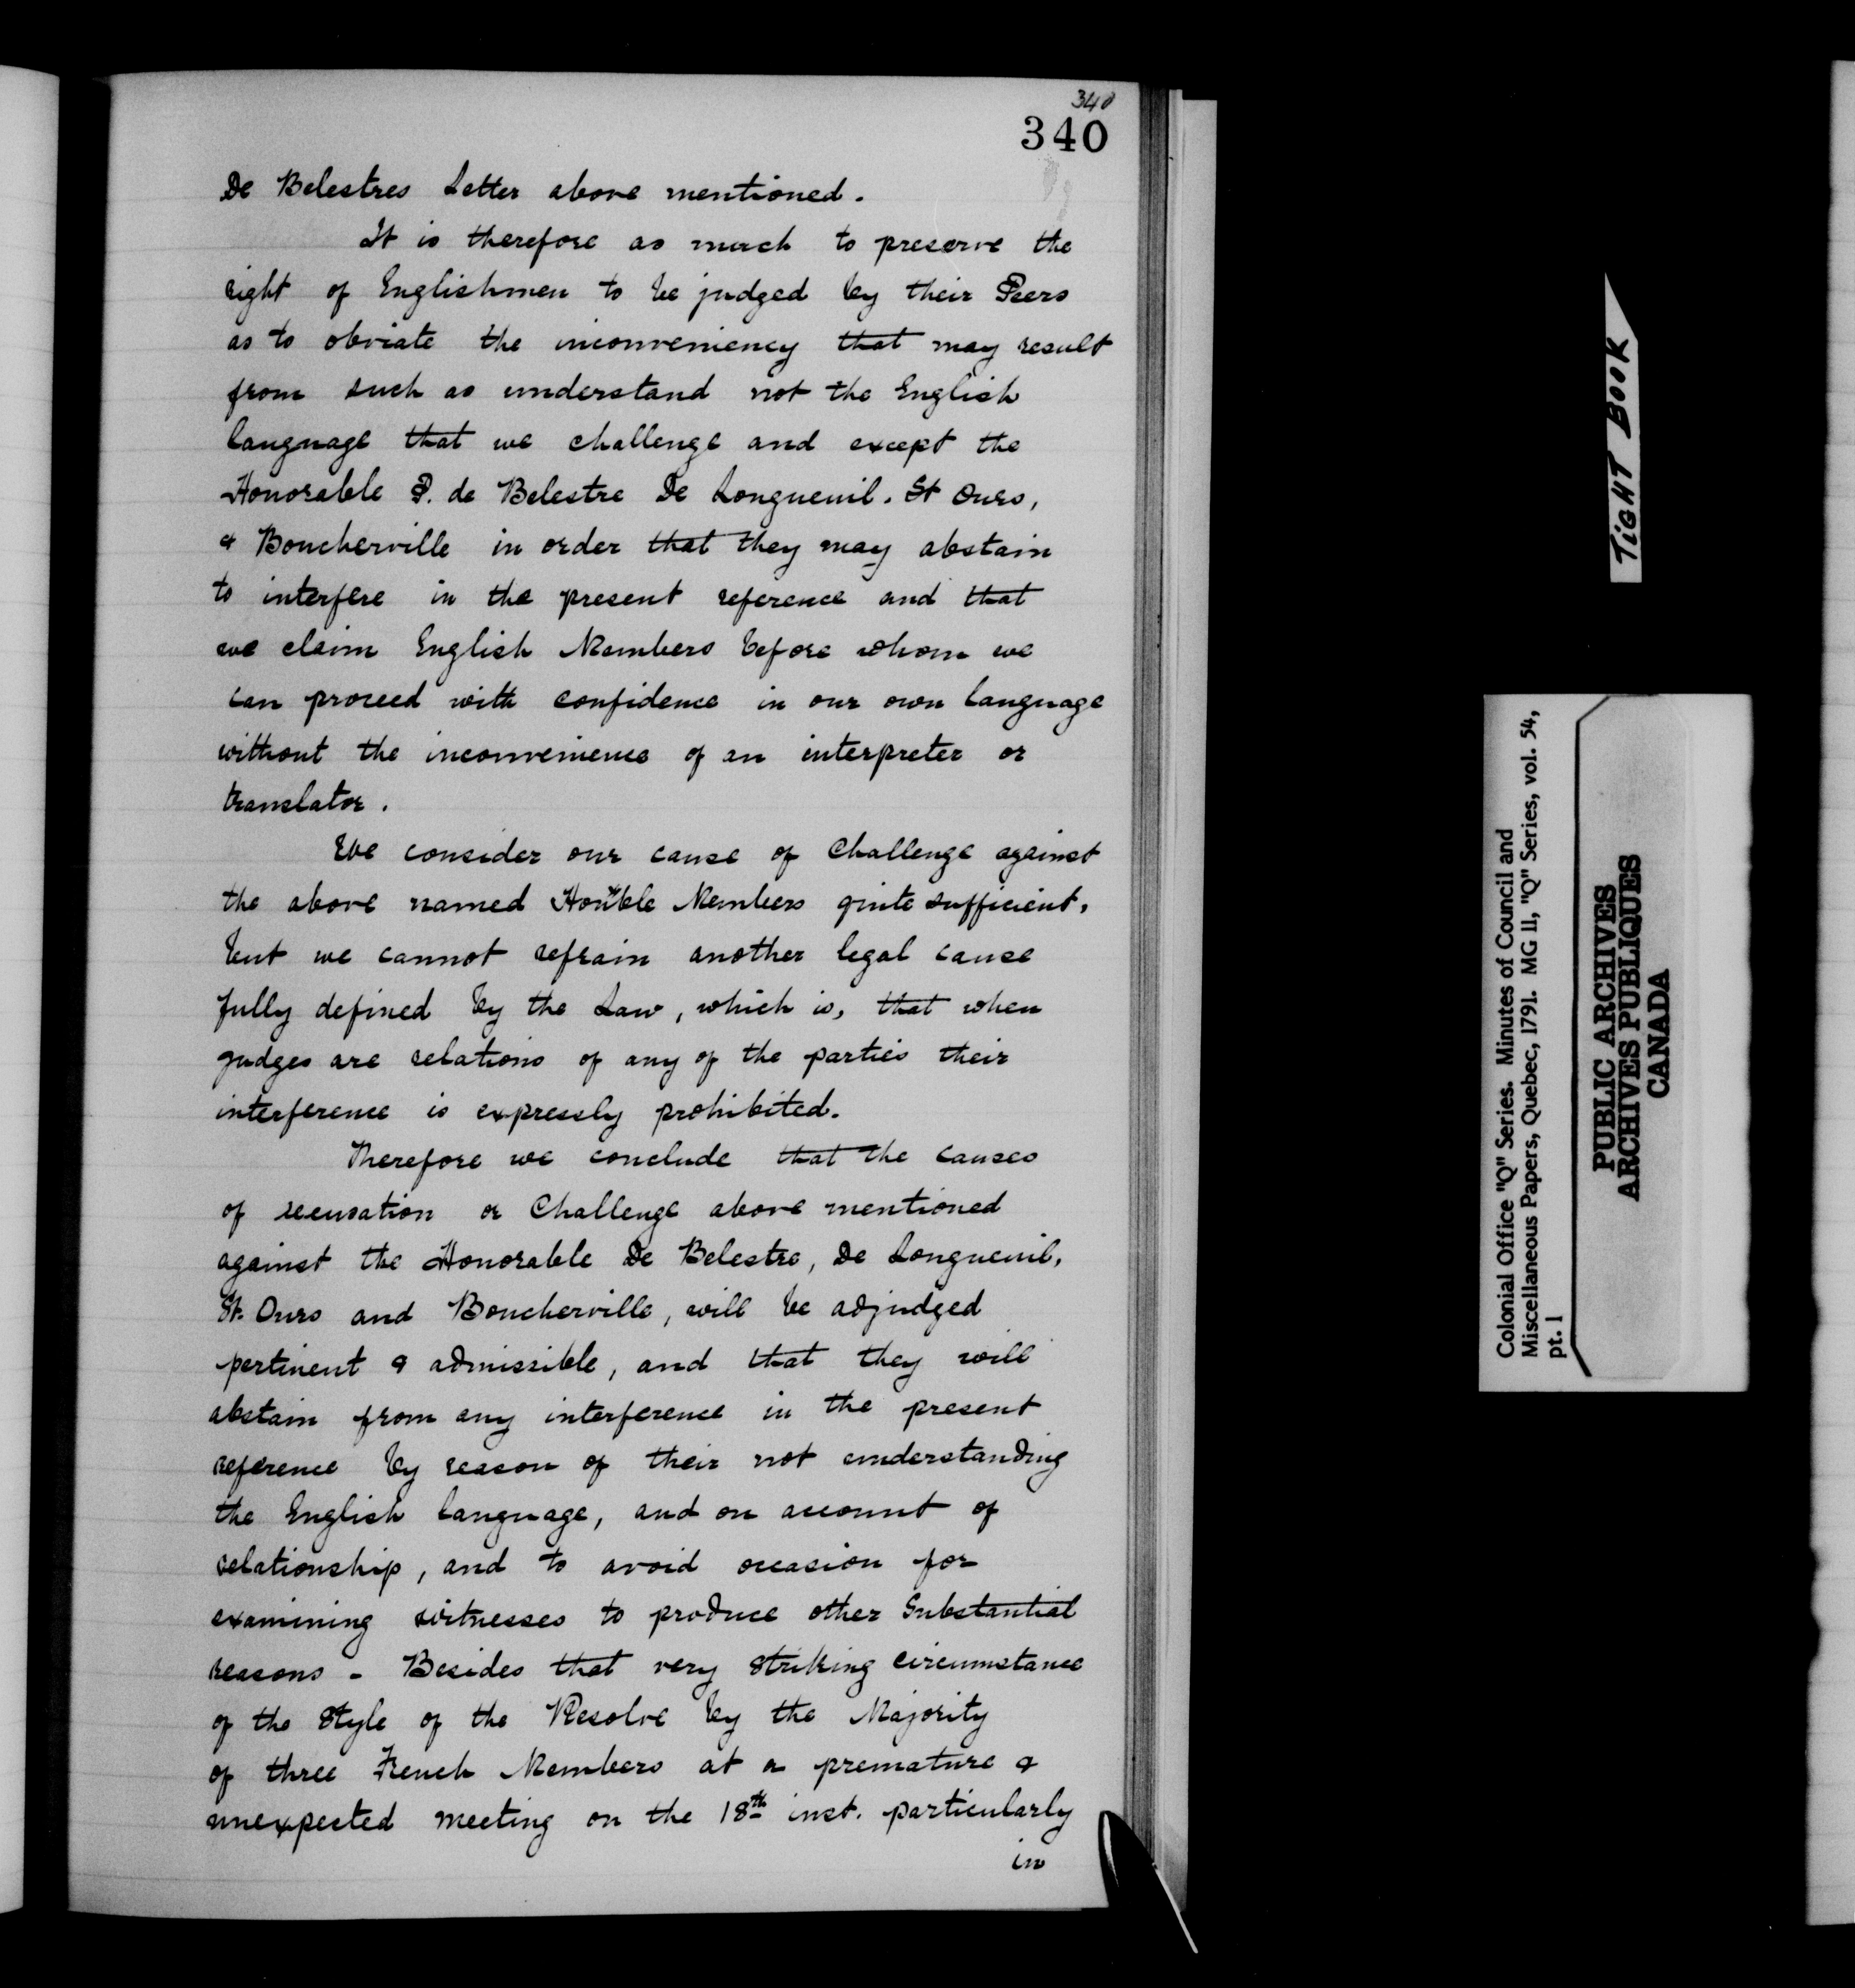 340
340
De Belestres Letter above mentioned.
It is therefore as much to preserve the
right of Englishmen to be judged by their Peers
as to obviate the inconveniency that may result
from such as understand not the English
language that we challenge and except the
Honorable P. de Belestre De Longueuil. St Ours,
& Boucherville in order that they may abstain
to interfere in the present reference and that
we claim English Members before whom we
can proceed with confidence in our own language
without the inconvenience of an interpreter or
translator.
We consider our cause of Challenge against
the above named Hon'ble Members quite sufficient,
but we cannot refrain another legal cause
fully defined by the Law, which is, that when
judges are relations of any of the parties their
interference is expressly prohibited.
Therefore we conclude that the causes
of recusation or Challenge above mentioned
against the Honorable De Belestre, De Longueuil,
St. Ours and Boucherville, will be adjudged
pertinent & admissible, and that they will
abstain from any interference in the present
reference by reason of their not understanding
the English language, and on account of
relationship, and to avoid occasion for
examining witnesses to produce other Substantial
reasons - Besides that very striking circumstance
of the Style of the Resolve by the Majority
of three French Members at a premature &
unexpected meeting on the 18th inst. particularly
in
TIGHT BOOK
Colonial Office "Q" Series. Minutes of Council and
Miscellaneous Papers, Quebec, 1791. MG 11, "Q" Series, vol. 54,
pt. 1
PUBLIC ARCHIVES
ARCHIVES PUBLIQUES
CANADA